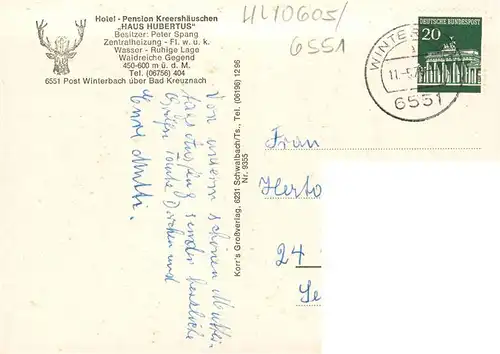 Hotel - Pension Kreershäuschen
„HAUS HUBERTUS"
Besitzer: Peter Spang
Zentralheizung - Fl. w. u. k.
Wasser - Ruhige Lage
Waldreiche Gegend
450-600 m ü. d. M.
Tel. (06756) 404
6551 Post Winterbach über Bad Kreuznach
HLY0605/
6551
DEUTSCHE BUNDESPOST
20
WINTER
11.-5.7
6551
Von unserm schönen Mutter-
tagsausflug sendet herzliche
Grüße Tante Dorchen und
Eure Mutti.
Korr's Großverlag, 6231 Schwalbach/Ts., Tel. (06196) 12 96
Nr. 9355
Frau
Herto
24
Se